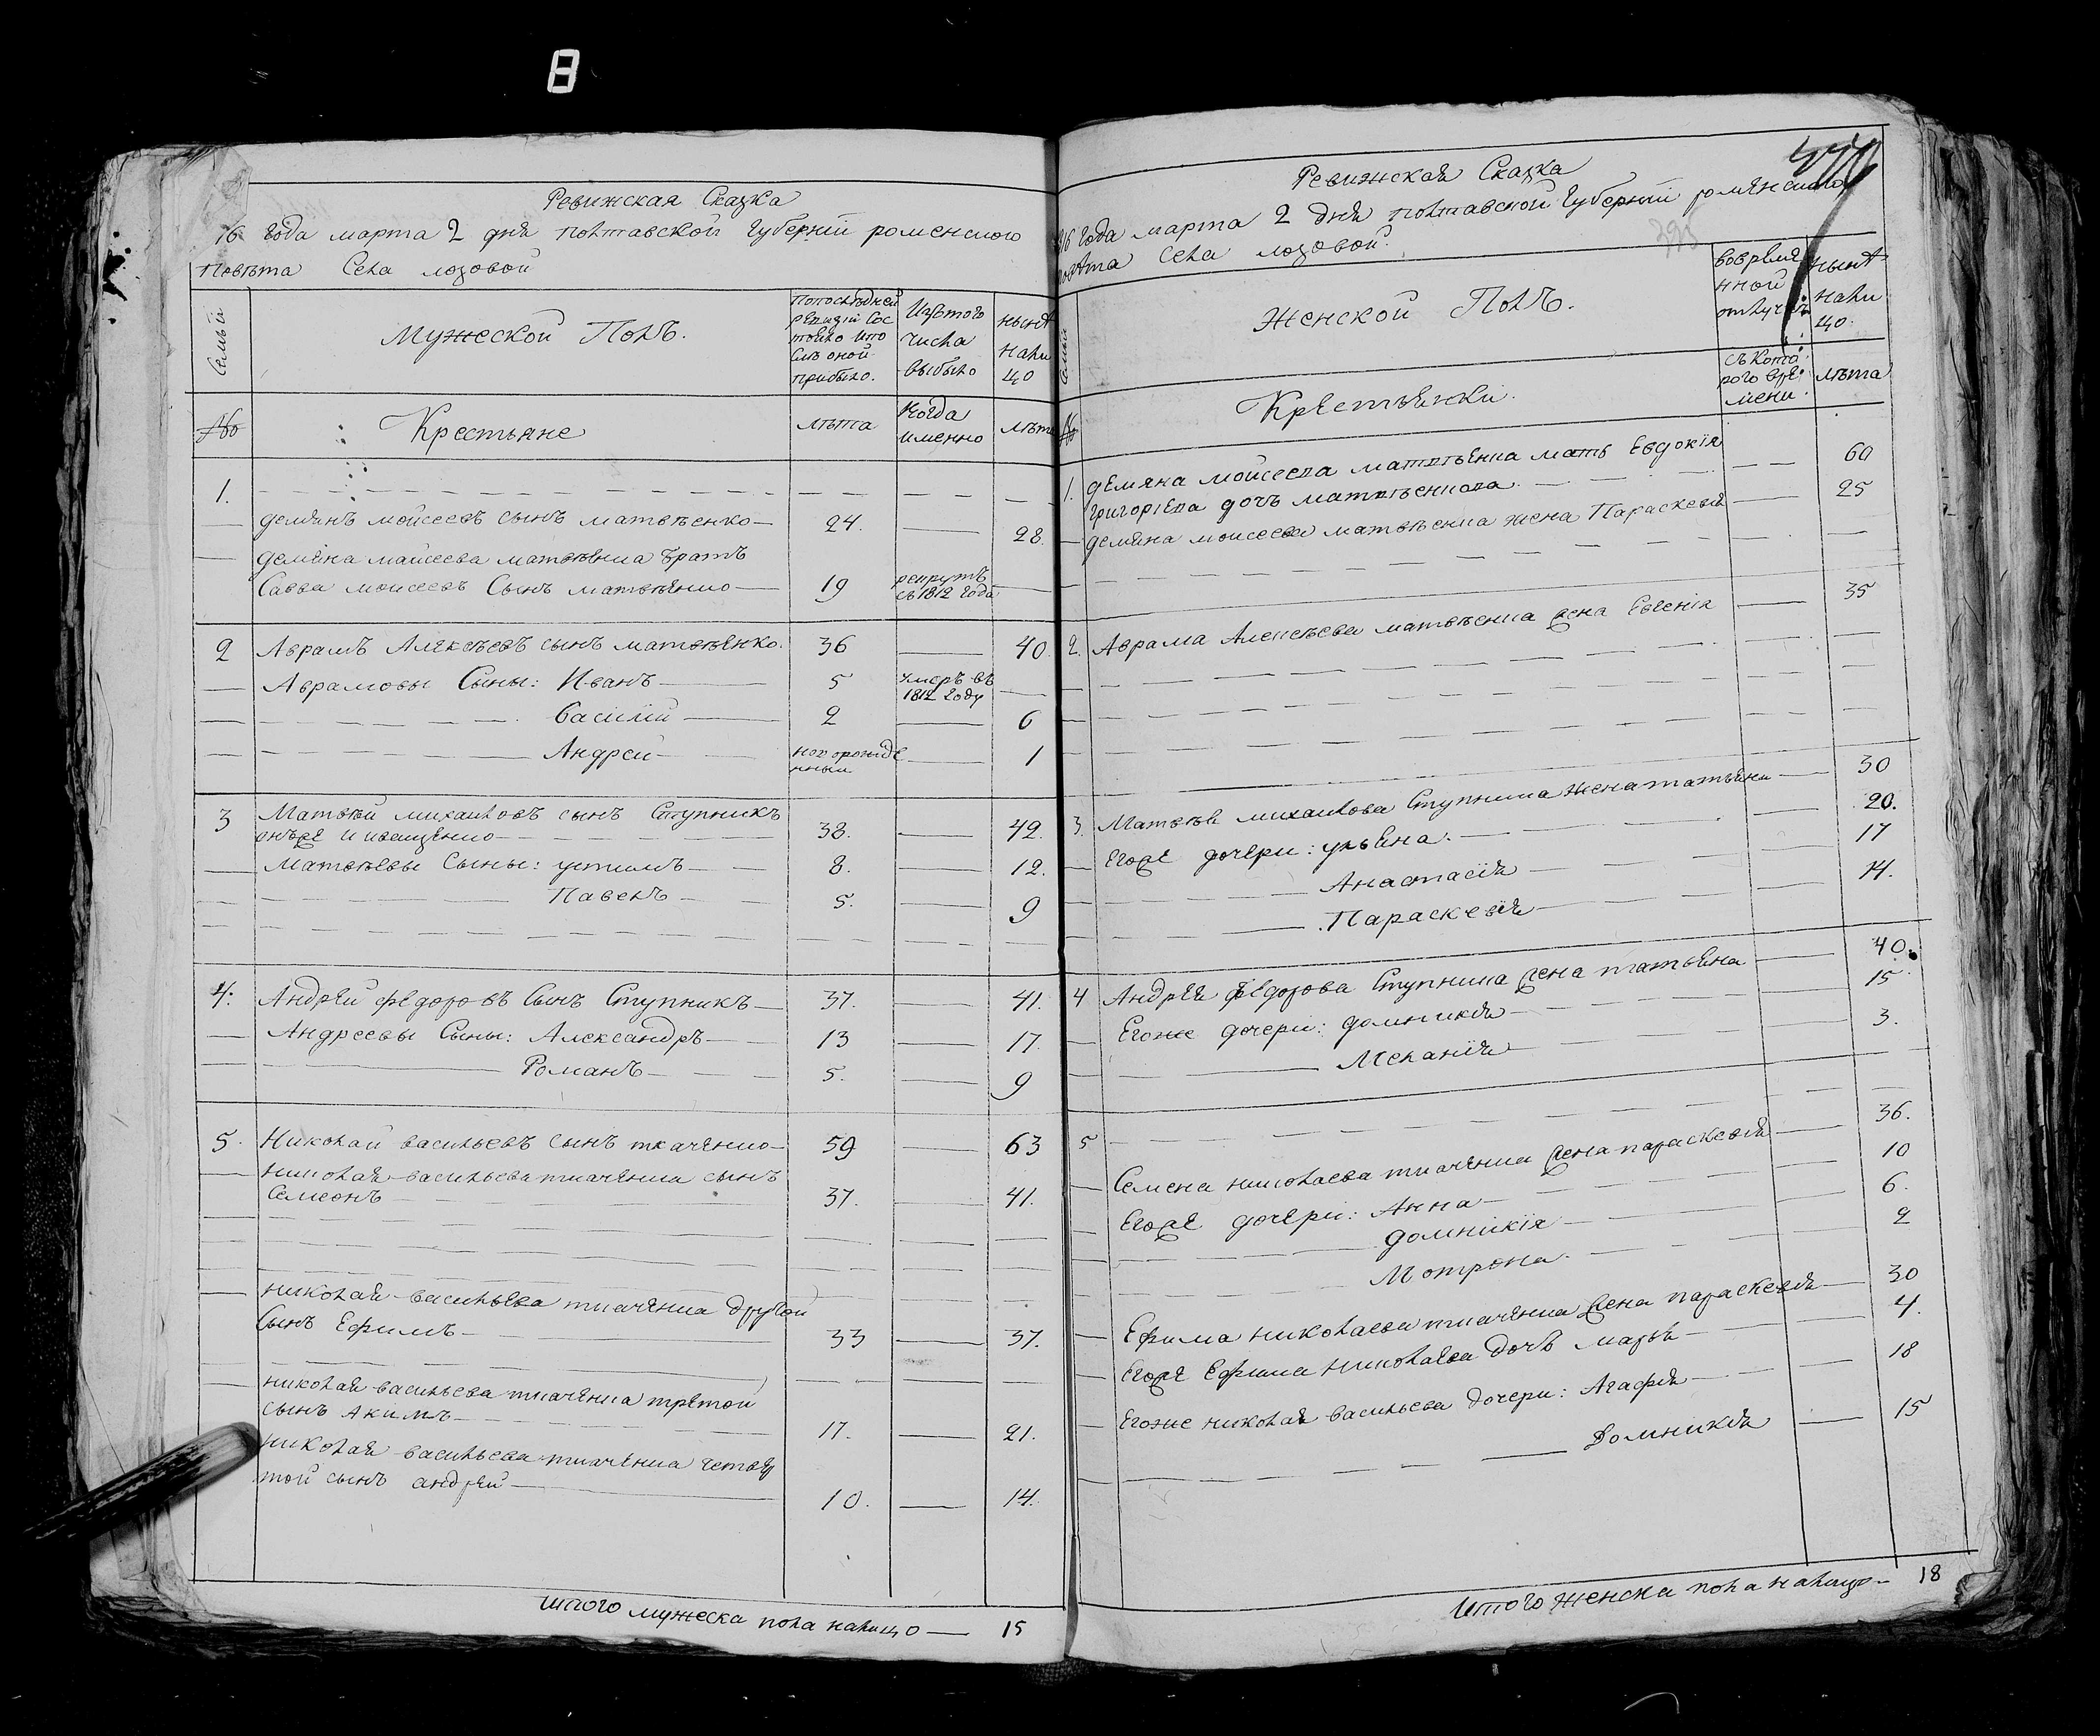 Ревижская Сказка
16 года марта 2 дня полтавской губерній роменского
повѣта Села лозовой
Семьи
Мужеской Полъ.
Попослѣдней ревизіи сос тояло ито слѣ оной прибыло.
Изътого числа выбыло
нынѣ нали цо
№
Крестьяне
лѣта
Когда именно
лѣта
1.
демянъ мойсеевъ сынъ матвѣенко 24. 28.
демяна майсеева матвѣенка братъ
Савва моисеевъ Сынъ матвѣенко 19 рекрутъ съ 1812 года
2 Аврамъ Алексѣевъ сынъ матвѣенко. 36 40
Аврамовы Сыны: Иванъ 5 умеръ въ 1812 году
Василій 2 6
Андрей новорожде нный 1
3 Матвѣй михайловъ сынъ Ступникъ
онъже и иващенко 38. 42.
Матвѣевы Сыны: устимъ 8. 12.
Павелъ 5. 9
4. Андрей федоровъ Сынъ Ступникъ 37. 41.
Андреевы Сыны: Александръ 13 17
Романъ 5. 9
5. Николай васильевъ сынъ ткаченко 59 63
николая васильева ткаченка сынъ
Семеонъ 37. 41.
николая васильева ткаченка другой
Сынъ Ефимъ 33 37.
николая васильева ткаченка третой
сынъ Акимъ 17. 21.
николая васильева ткаченка четвер
той сынъ андрей 10. 14.
итого мужеска пола налицо 15
Ревижская Сказка
816 года марта 2 дня полтавской губерній роменского
повѣта Села лозовой.
Семьи
Женской Полъ.
вовремя нной отлучкѣ
нынѣ нали цо.
съ кото рого вре мени
лѣта
№
Крестьянки.
1. демяна мойсеева матвѣенка мать Евдокія 60
григоріева дочъ матвѣенкова. 25
демяна моисеева матвѣенка жена Параскевія
2. Аврама Алексѣева матвѣенка жена Евгенія 35
3. Матвѣя михайлова Ступника жена татьяна 30
Егоже дочери: ульяна. 20.
Анастасія 17
Параскевія 14.
4 Андрея федорова Ступника жена татьяна 40.
Егоже дочери: домникія 15
Меланія 3.
5
Семена николаева ткаченка жена параскевія 36.
Егоже дочери: Анна 10
домникія 6.
Мотрона 2
Ефима николаева ткаченка жена параскевія 30
Егоже Ефима николаева дочъ марья 4.
Егоже николая васильева дочери: Агафія 18
Домникія 15
Итого женска пола налицо 18